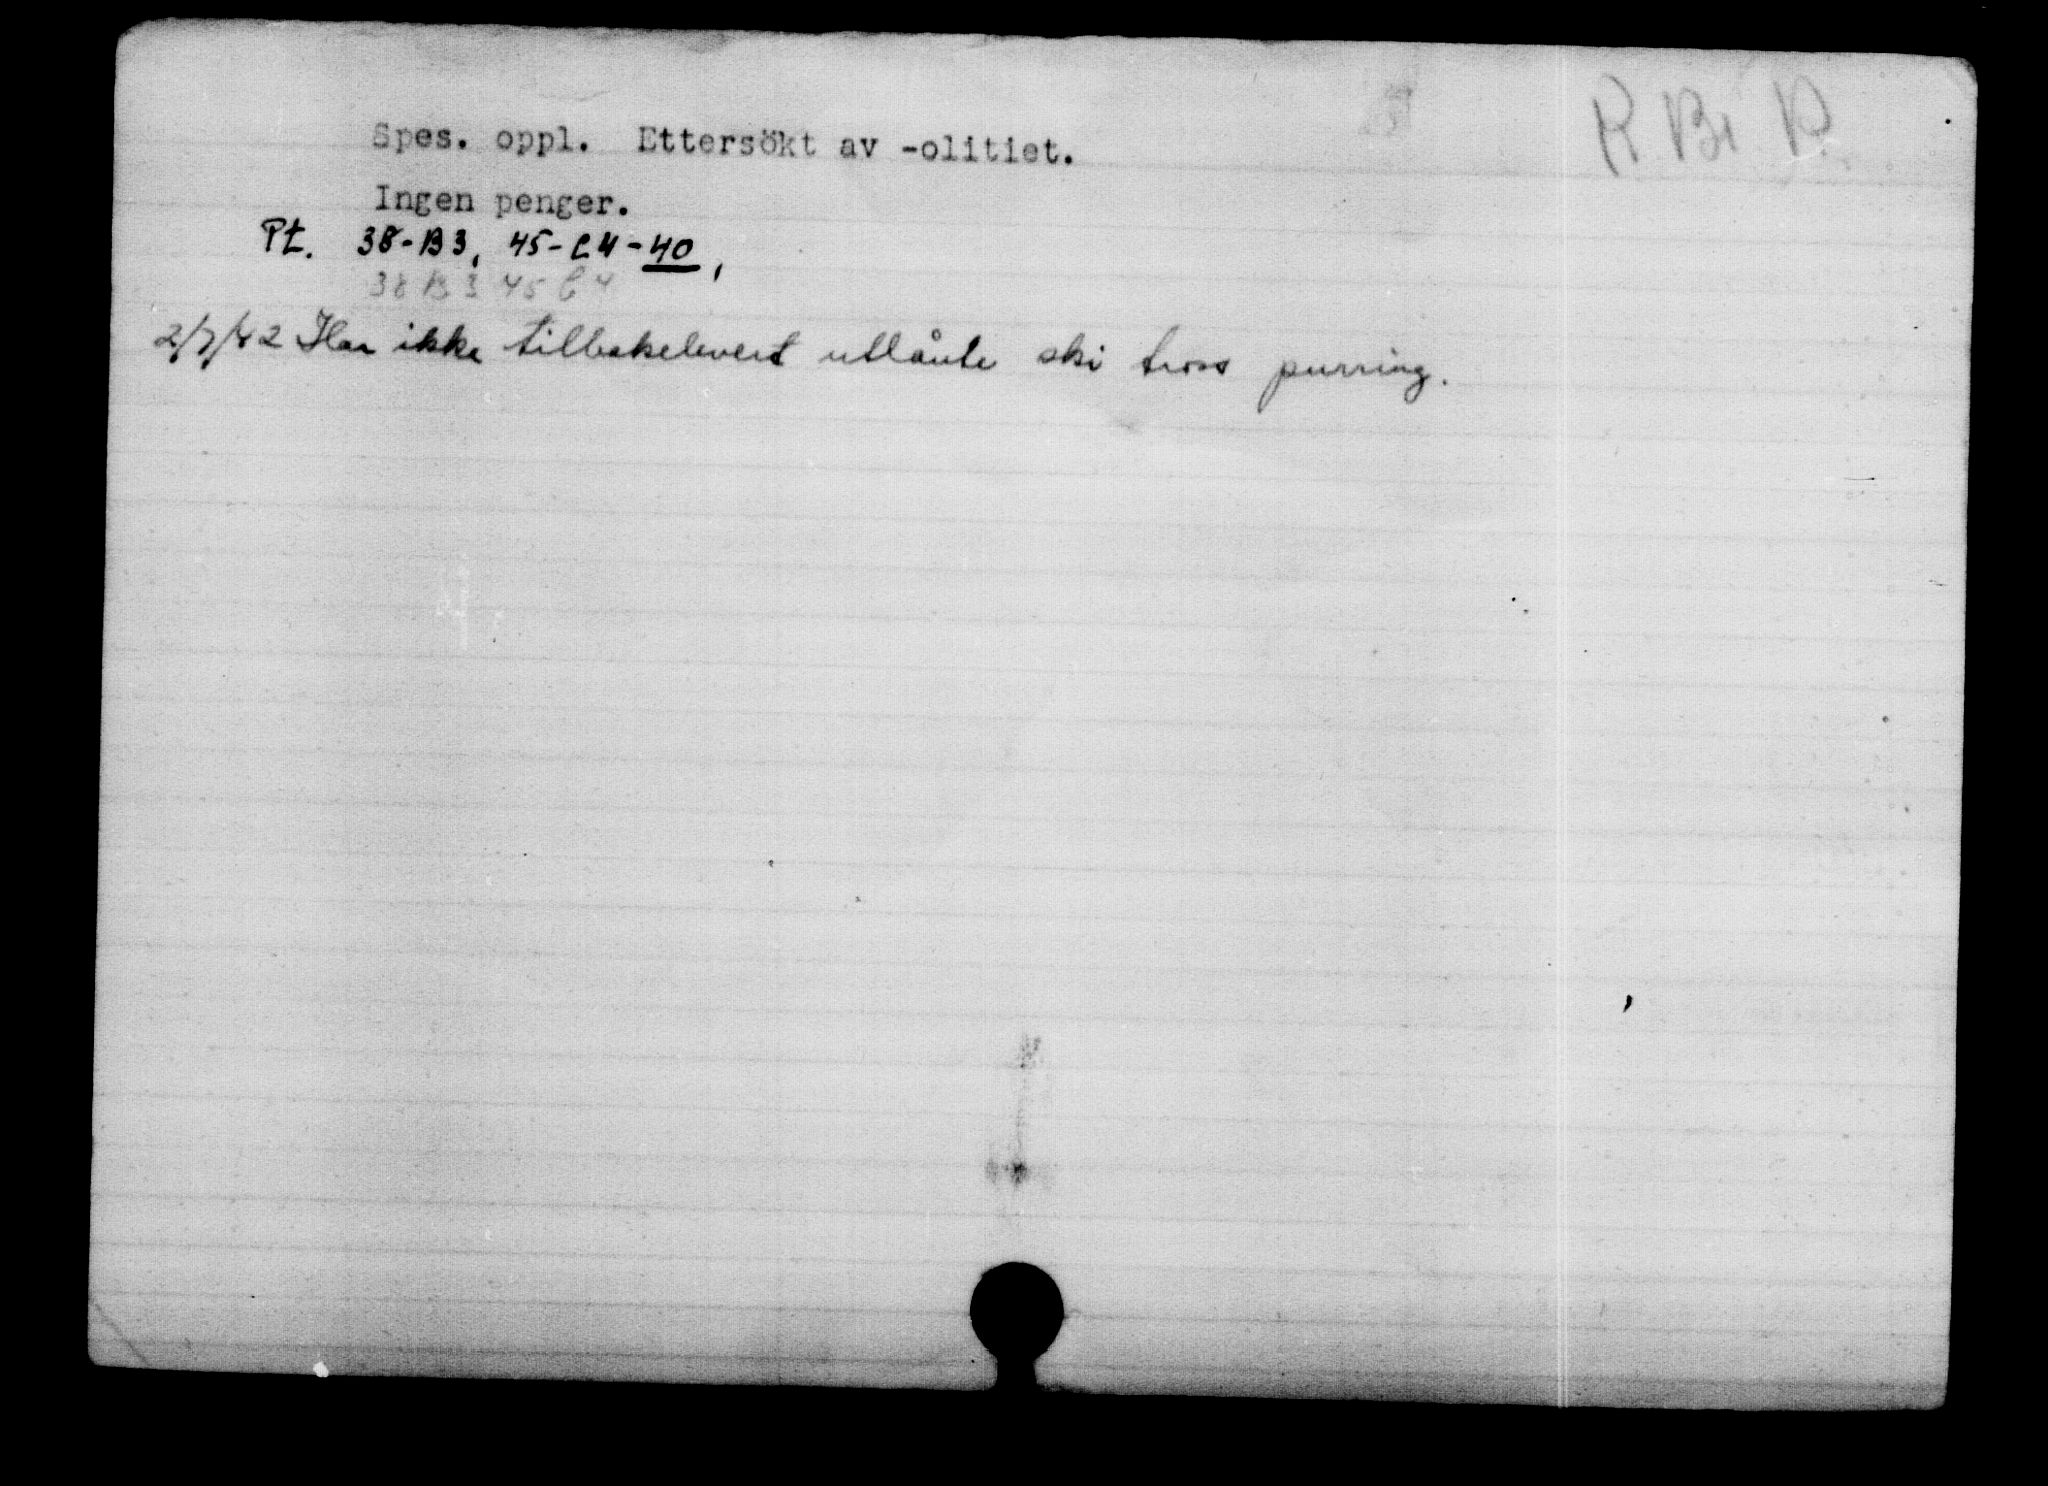 R Bi P.
Spes. oppl. Ettersökt av -olitiet.
Ingen penger.
Pt. 38-B3, 45-C4-40,
38 B 3 45 C 4
2/7/42 Har ikke tilbakelevert utlånte ski tross purring.